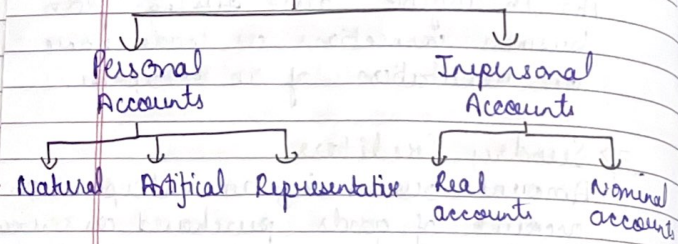 Personal Accounts
Impersonal Accounts
Natural
Artifical
Representative
Real accounts
Nominal accounts